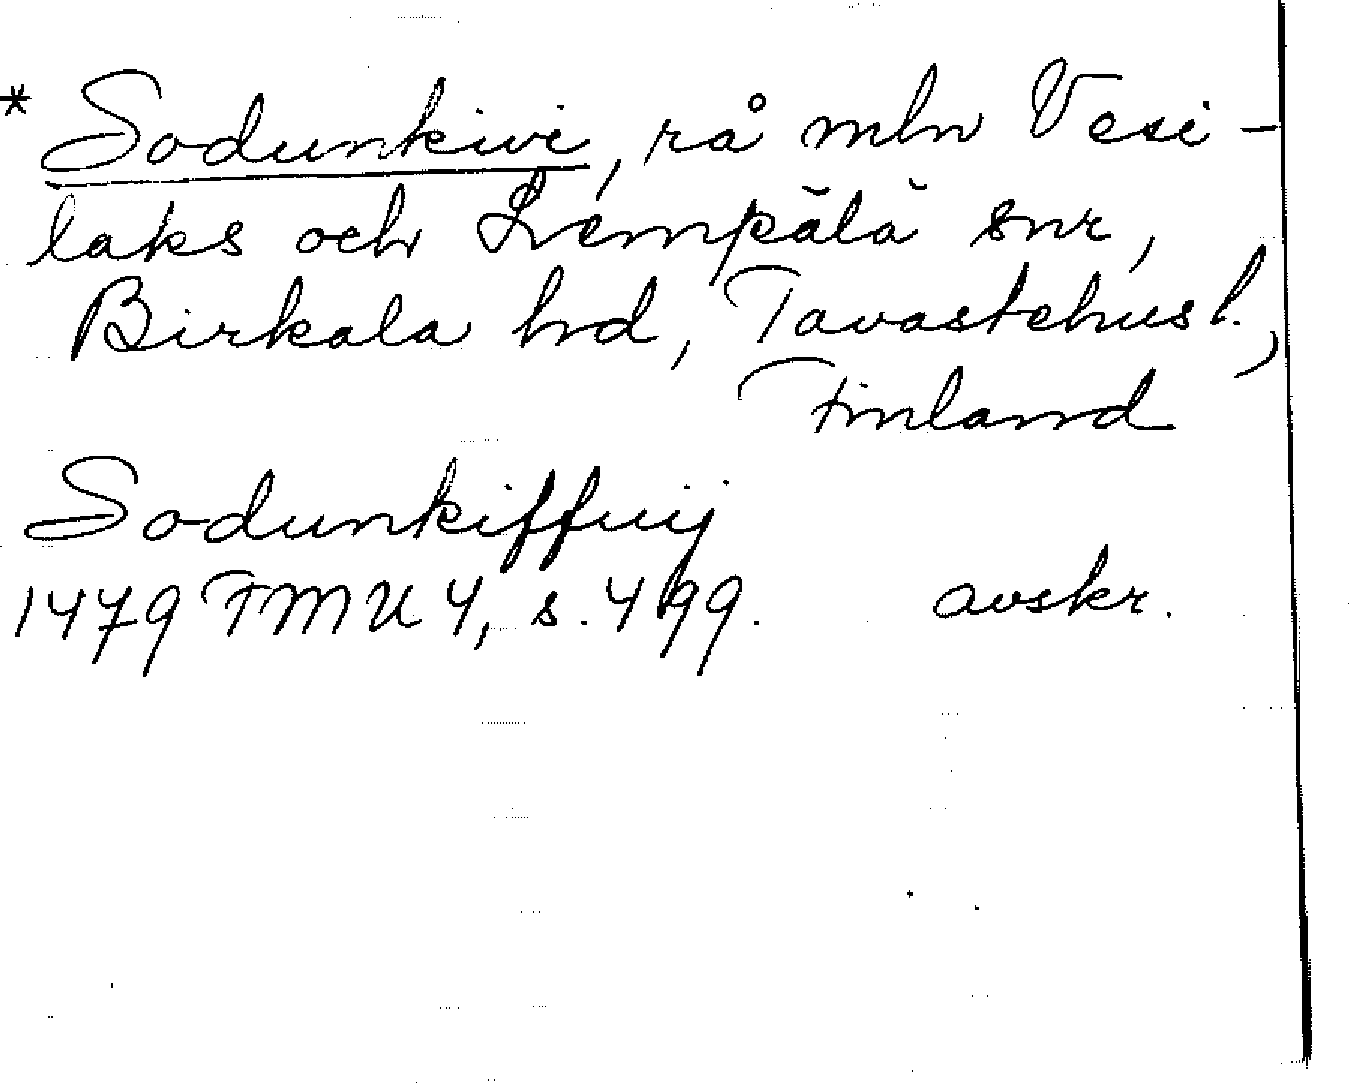 * Sodunkivi, rå mln Vesi-
laks och Lempälä snr,
Birkala hrd, Tavastehus l.,
Finland
Sodunkiffuij
1479 FMU 4, s. 499. avskr.